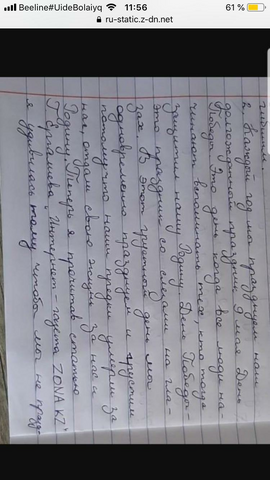 Beeline#UdeBolaiyq 11:56 61 %
ru-static.z-dn.net
2. Каждый год мы празднуем наш
долгожданный праздник 9 мая День
Победы. Это день когда все люди на-
чинают вспоминать тех, кто тогда
защитил нашу Родину. День Победы-
это праздник со слезами на гла-
зах. В этот грустный день мы
одновременно празднуем и грустим
потому что наши предки умерли за
нас, отдали свою жизнь за нас и
Родину. Теперь я прочитав статью
Г. Ергалиева "Интернет-газета ZONAKZ"
я удивилась тому, чтобы мы не празд-